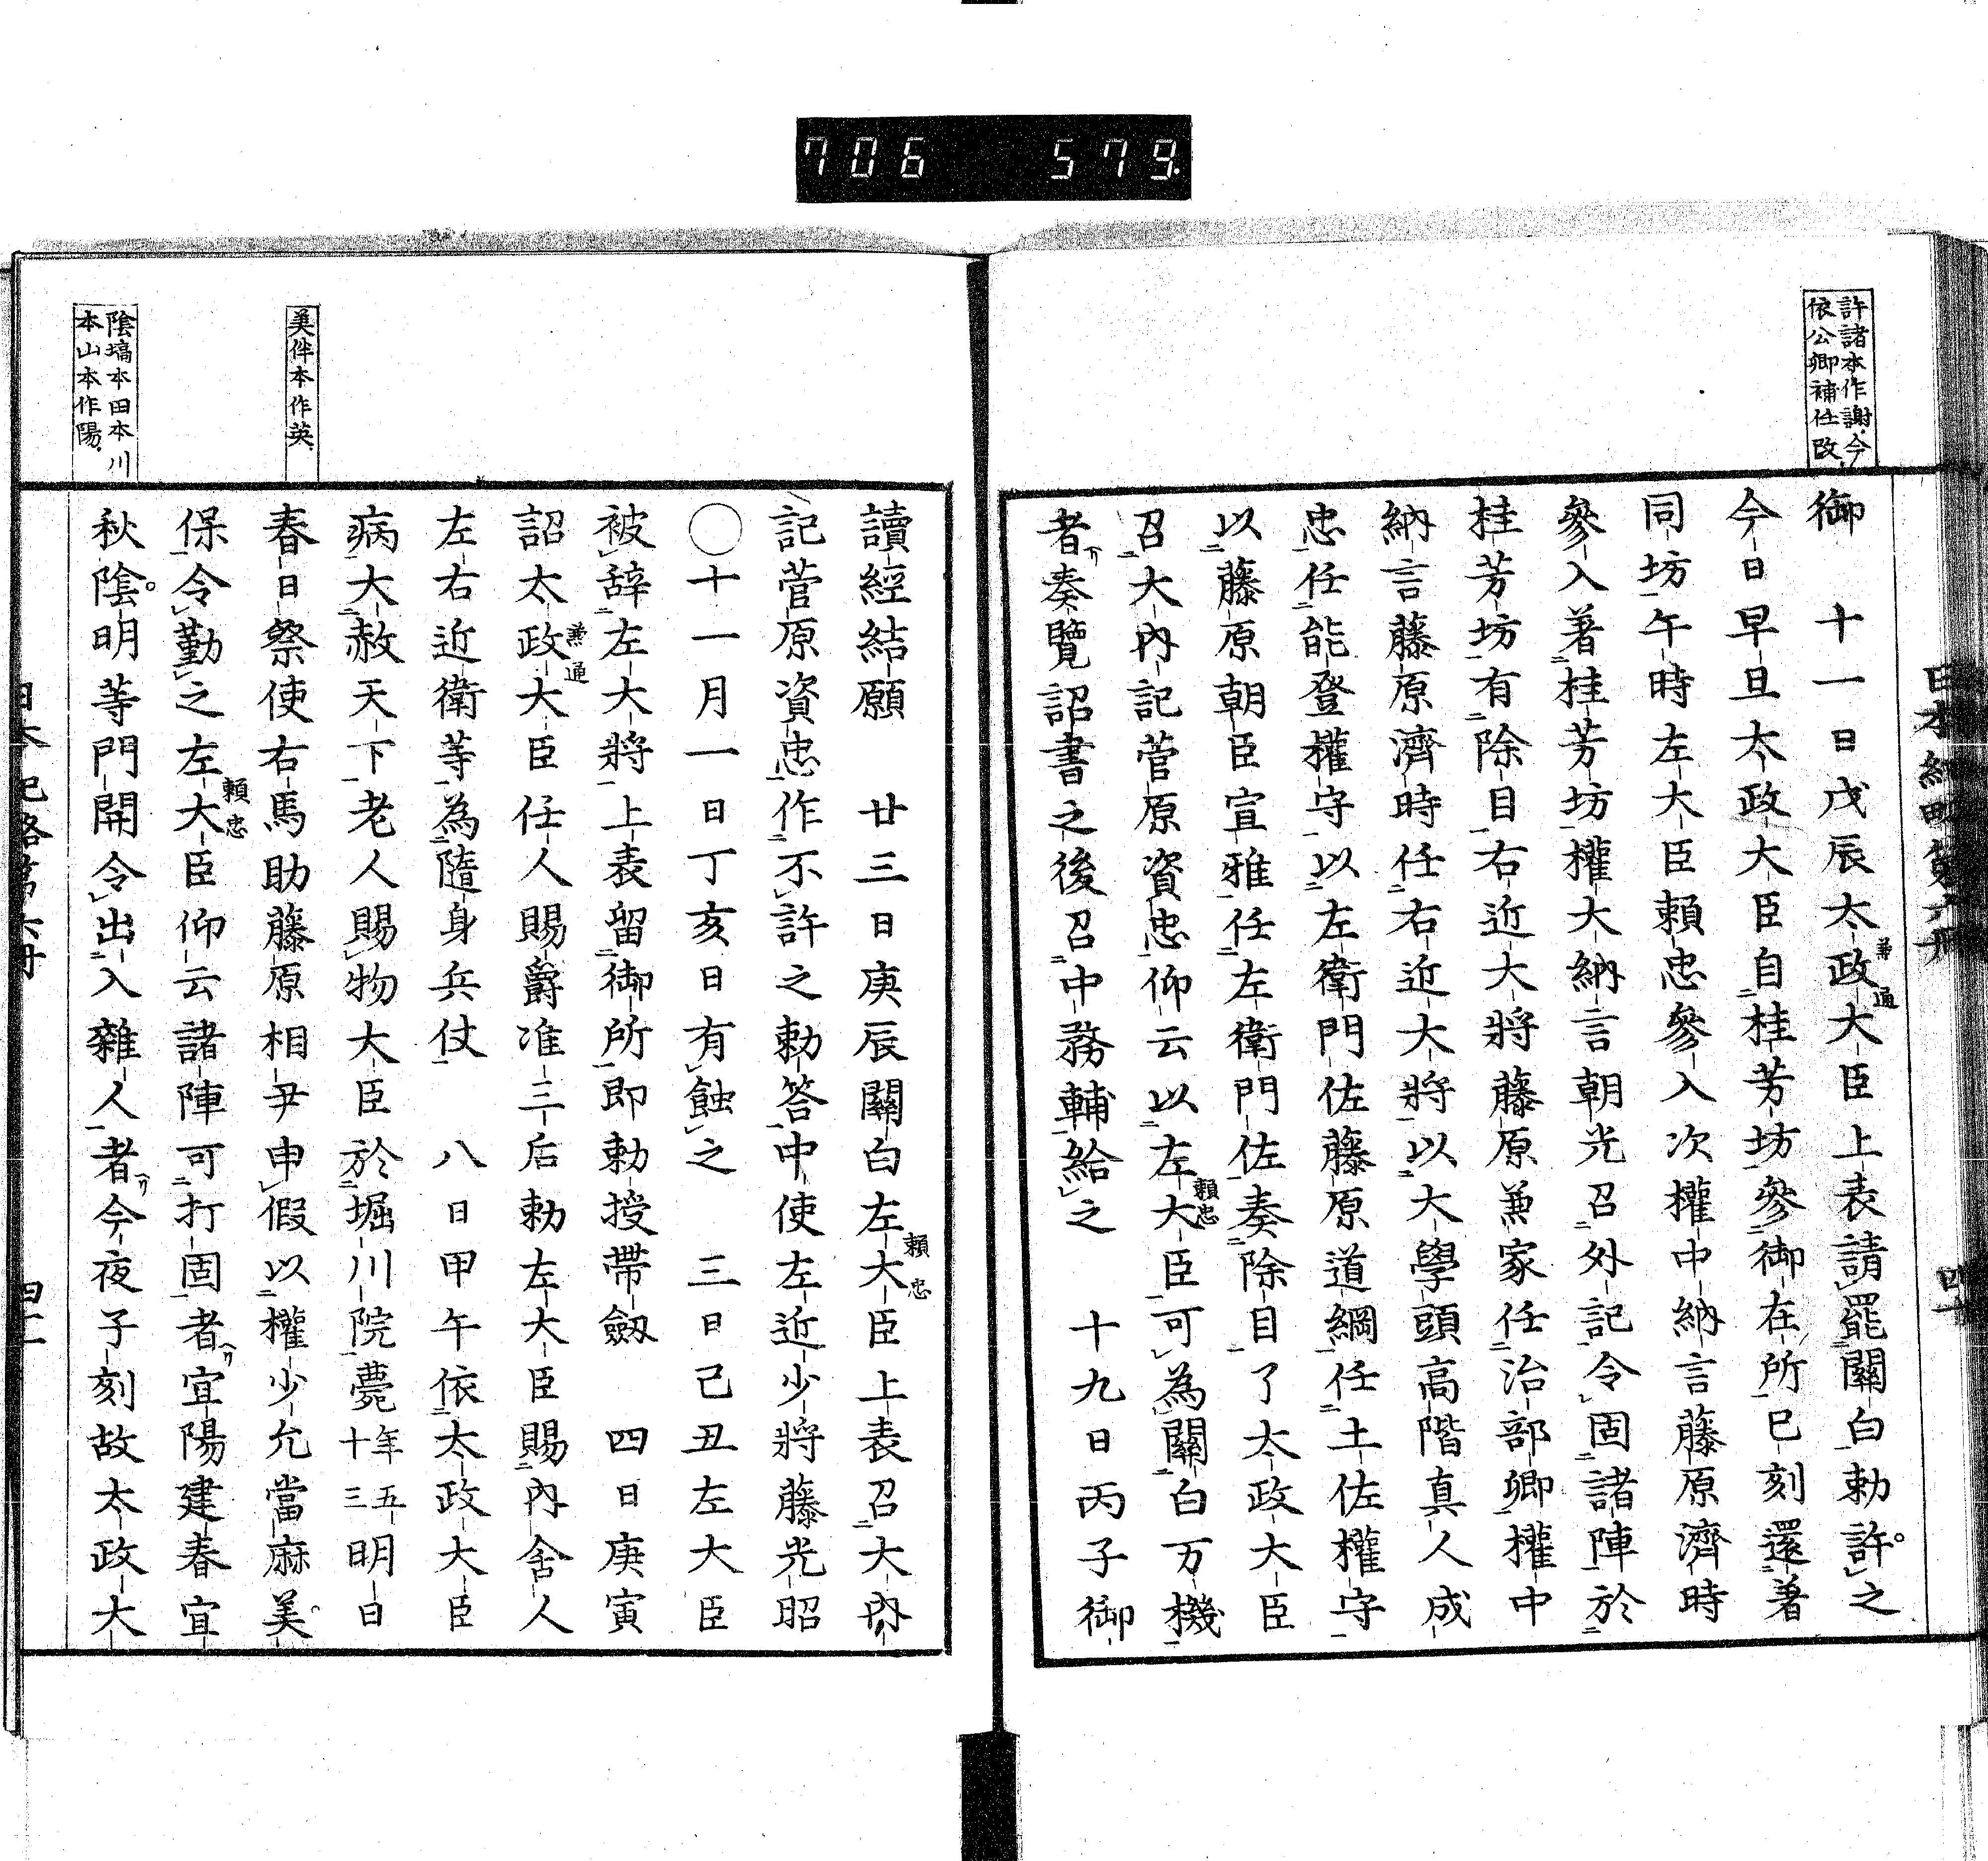 706 579.
許諸本作謝今
依公卿補任改
日本紀略第六册
四十一
御　十一日戊辰太政大臣上表請罷關白勅許之
兼通
今日早旦太政大臣自桂芳坊參御在所巳刻還著
同坊午時左大臣賴忠參入次權中納言藤原濟時
參入著桂芳坊權大納言朝光召外記令固諸陣於
桂芳坊有除目右近大將藤原兼家任治部卿權中
納言藤原濟時任右近大將以大學頭高階真人成
忠任能登權守以左衛門佐藤原道綱任土佐權守
以藤原朝臣宣雅任左衛門佐奏除目了太政大臣
召大內記菅原資忠仰云以左大臣可為關白万機
賴忠
者奏覽詔書之後召中務輔給之　十九日丙子御
讀經結願　廿三日庚辰關白左大臣上表召大內
賴忠
記菅原資忠作不許之勅答中使左近少將藤光昭
○十一月一日丁亥日有蝕之　三日己丑左大臣
被辞左大將上表留御所即勅授帶劔　四日庚寅
詔太政大臣任人賜爵准三后勅左大臣賜內舍人
兼通
左右近衛等為隨身兵仗　八日甲午依太政大臣
病大赦天下老人賜物大臣於堀川院薨年五十三明日
春日祭使右馬助藤原相尹申假以權少允當麻美
保令勤之左大臣仰云諸陣可打固者宜陽建春宜
賴忠
秋陰明等門開令出入雜人者今夜子刻故太政大
美伴本作英
陰塙本田本川
本山本作陽
日本紀略第六册
四十二